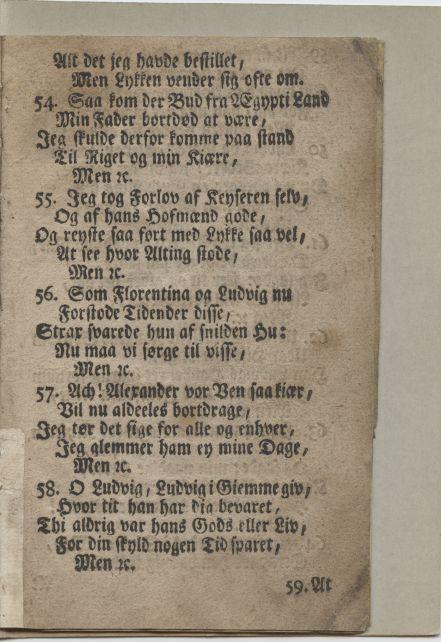 Alt det jeg havde bestillet,
Men Lykken vender sig ofte om.
54. Saa kom der Bud fra Ægypti Land
Min Fader bortdød at være,
Jeg skulde derfor komme paa stand
Til Riget og min Kiære,
Men ꝛc.
55. Jeg tog Forlov af Keyseren selv,
Og af hans Hofmænd gode,
Og reyste saa fort med Lykke saa vel,
At see hvor Alting stode,
Men ꝛc.
56. Som Florentina og Ludvig nu
Forstode Tidender disse,
Strax svarede hun af snilden Hu:
Nu maa vi sørge til visse,
Men ꝛc.
57. Ach! Alexander vor Ven saa kiær,
Vil nu aldeeles bortdrage,
Jeg tør det sige for alle og enhver,
Jeg glemmer ham ey mine Dage,
Men ꝛc.
58. O Ludvig, Ludvig i Giemme giv,
Hvor tit han har dig bevaret,
Thi aldrig var hans Gods eller Liv,
For din skyld nogen Tid sparet,
Men ꝛc.
59. At